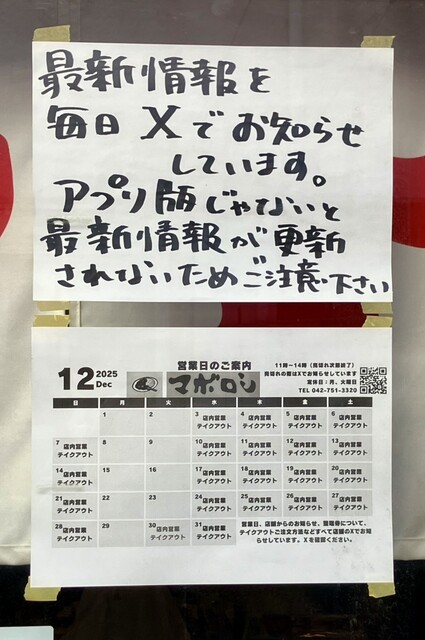 最新情報を
毎日Xでお知らせ
しています。
アプリ版じゃないと
最新情報が更新
されないためご注意下さい
営業日のご案内
12 2025 Dec
マボロシ
11時〜14時(売切れ次第終了)
売切れの際はXでお知らせしています
定休日:月、火曜日
TEL 042-751-3320
日 月 火 水 木 金 土
1 2 3 4 5 6
店内営業 店内営業 店内営業 店内営業
テイクアウト テイクアウト テイクアウト テイクアウト
7 8 9 10 11 12 13
店内営業 店内営業 店内営業 店内営業 店内営業
テイクアウト テイクアウト テイクアウト テイクアウト テイクアウト
14 15 16 17 18 19 20
店内営業 店内営業 店内営業 店内営業 店内営業
テイクアウト テイクアウト テイクアウト テイクアウト テイクアウト
21 22 23 24 25 26 27
店内営業 店内営業 店内営業 店内営業 店内営業
テイクアウト テイクアウト テイクアウト テイクアウト テイクアウト
28 29 30 31
店内営業 店内営業 店内営業
テイクアウト テイクアウト テイクアウト
営業日、店舗からのお知らせ、整理券について、
テイクアウトご注文方法などすべて店舗のXでお知
らせしています。Xを確認ください。